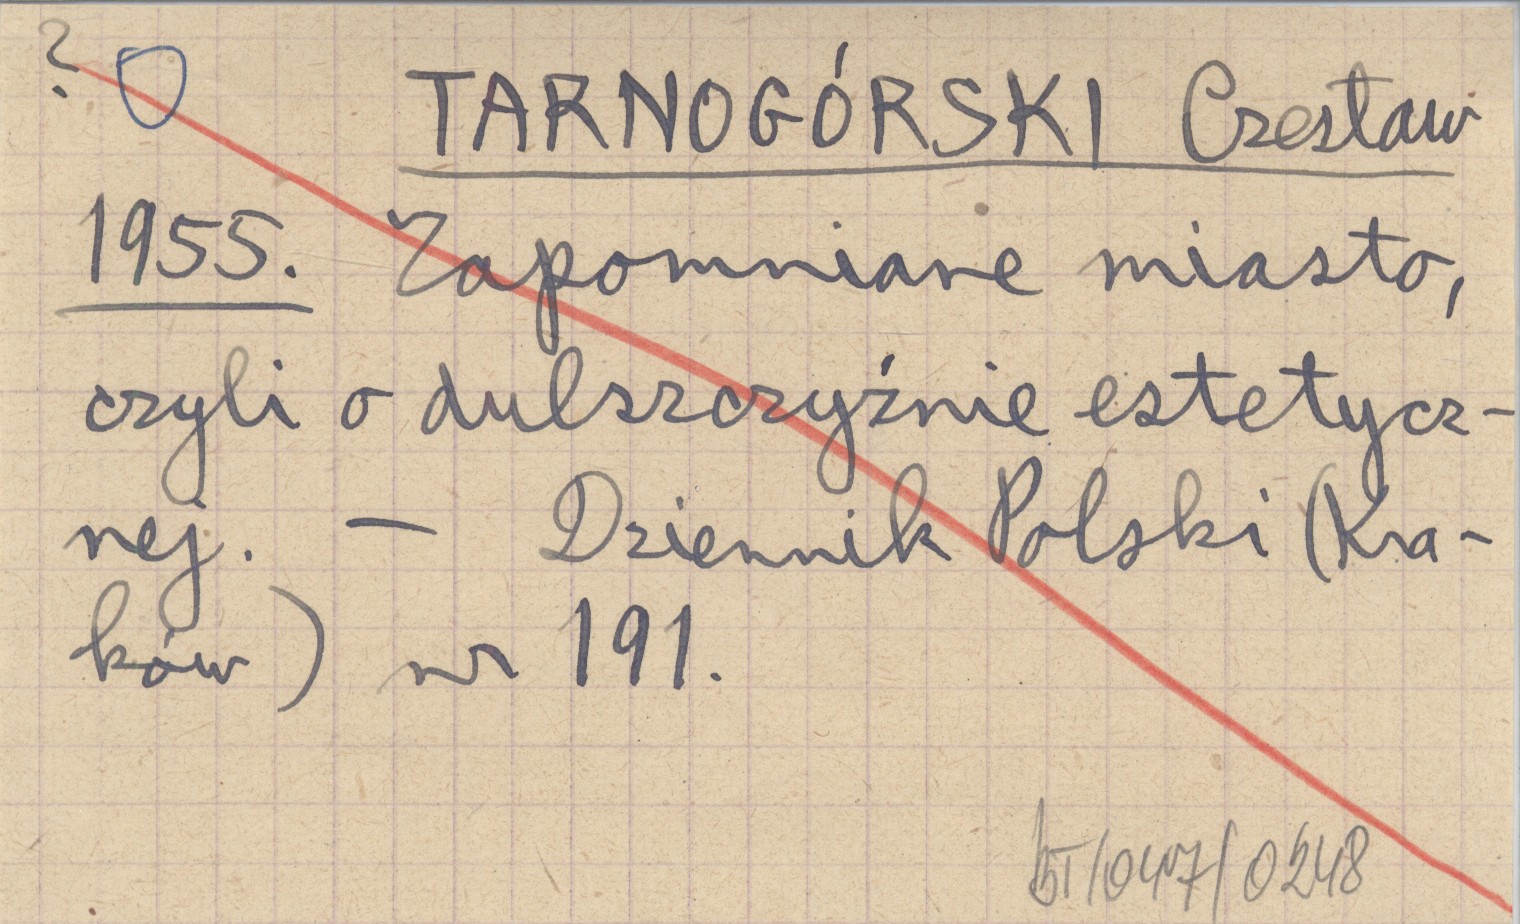 ?
TARNOGÓRSKI Czesław
1955. Zapomniane miasto,
czyli o dulszczyźnie estetycz-
nej. — Dziennik Polski (Kra-
ków) nr 191.
bT/047/0248